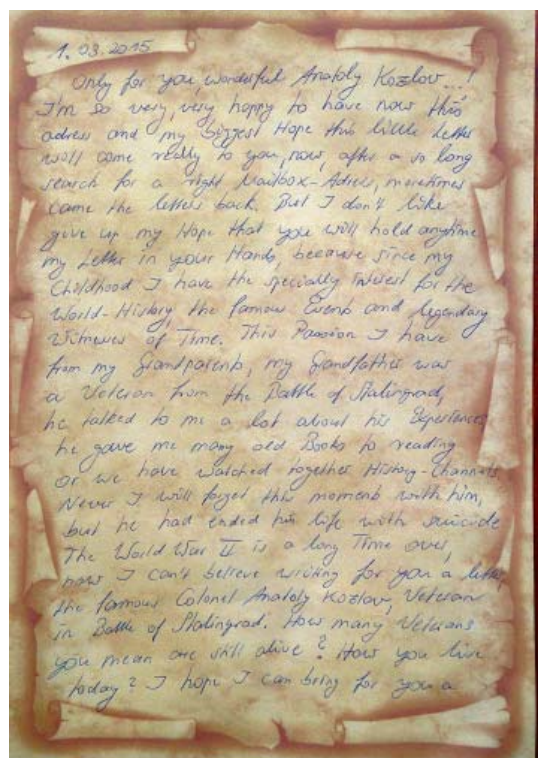 1.03.2015
Only for you, wonderful Anatoly Kozlov...!
I'm so very, very happy to have now this
adress and my biggest Hope this little Letter
will come really to you, now, after a so long
search for a right Mailbox-Adress, moretimes
came the letters back. But I don't like
give up my Hope that you will hold anytime
my Letter in your Hands, because since my
Childhood I have the specially Interest for the
World-History, the famous Events and legendary
Witnesses of Time. This Passion I have
from my Grandparents, my Grandfather was
a Veteran from the Battle of Stalingrad,
he talked to me a lot about his Experiences,
he gave me many old Books to reading
or we have watched together History-Channels.
Never I will forget this moments with him,
but he had ended his life with suicide
The World War II is a long Time over,
now I can't believe writing for you a letter,
the famous Colonel Anatoly Kozlov, Veteran
in Battle of Stalingrad. How many Veterans
you mean are still alive? How you live
today? I hope I can bring for you a